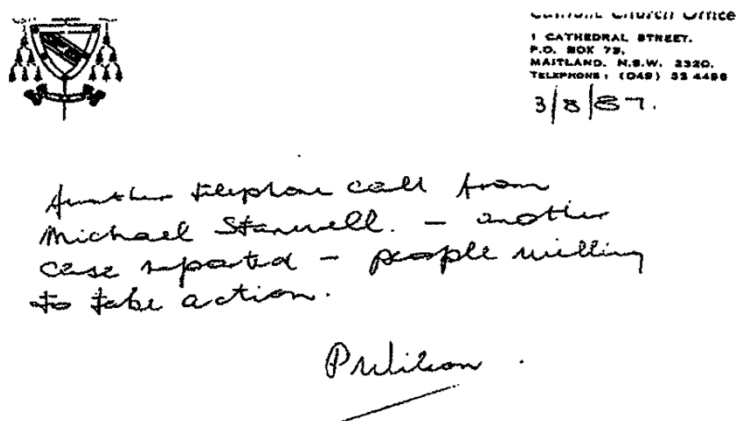 Catholic Church Office
1 CATHEDRAL STREET.
P.O. BOX 79,
MAITLAND. N.S.W. 2320.
TELEPHONE: (049) 33 4486
3/8/87.
Another telephone call from
Michael Stanwell. – another
case reported – people willing
to take action.
P Wilson.